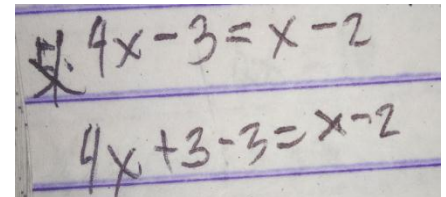 5). 4x-3=x-2
4x+3-3=x-2